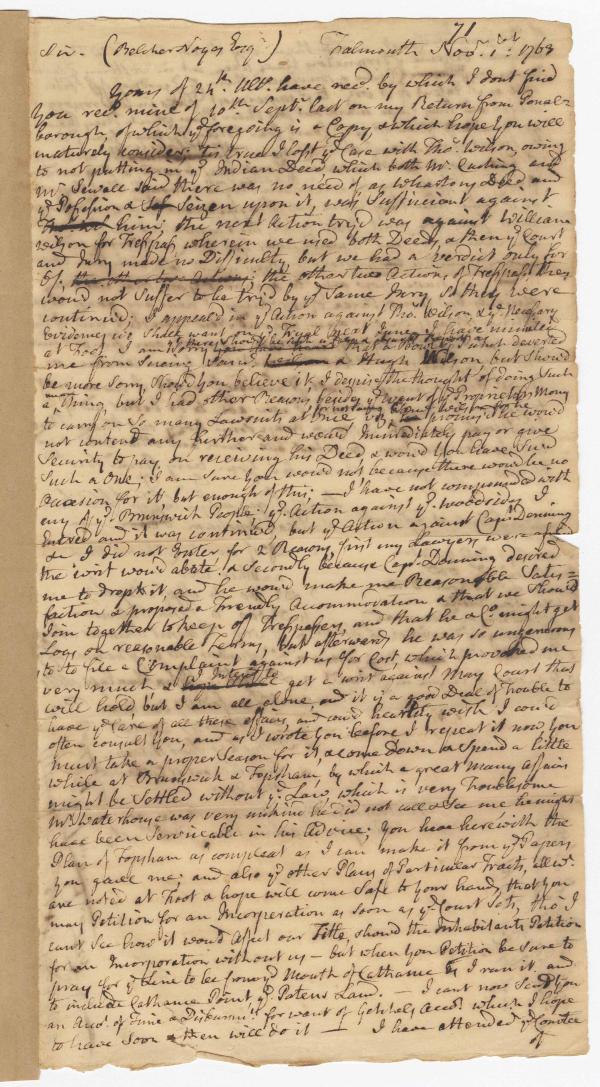 71
Sir. (Belcher Noyes Esqr.) Falmouth Nov. 1st: 1763
Yours of 24th. Ulto. have recd. by which I dont find
You recd. mine of 10th Septr. last on my Return from Ponal=
borough, of which ye. foregoing is a Copy, & which hope You will
maturely consider: tis true I lost ye. Case with Thos. Wilson, owing
to not putting in ye. Indian Deed which both Mr. Cushing and
Mr. Sewall said there was no need of, as Whartons Deed and
ye. Possession & Seizen upon it, was Sufficient against
him; the next Action try'd was against William
Wilson for Trespass wherein we used both Deeds, & then ye. Court
and Jury made no Difficulty but we had a Verdict only for
the other two Actions, of Trespass they
would not Suffer to be try'd by ye. Same Jury, so they were
continued; I appeal'd in ye. Action against Thos. Wilson, & ye. Necessary
Evidences we shall want on ye. Tryal next June, I have minuted
at Foot. I am sorry
me from Suing & Hugh Wilson but should
be more sorry, should You believe it, I despise the thought of doing such
a thing but I had other Reasons, besides ye. want of ye. Proprietors Money
to carry on so many Lawsuits at once, he would
not contend any further and would Immediately pay or give
Security to pay, on receiving his Deed & would You have Sued
Such a One; I am Sure You would not because there would be no
Occasion for it but enough of this; — I have not compounded with
any of ye. Brunswick People: ye. Action against ye. Woodsides I
Entred and it was continued, but ye. Action against Capt. Dunning
& I did not Enter for 2 Reasons, first my Lawyers were
the writ would abate & Secondly because Capt. Dunning desired
me to drop it, and he would make me Reasonable Satis=
faction & proposed a Friendly Accommodation & that we Should
Join together to keep of Trespassers, and that he & Co. might get
Logs on reasonable Terms, but afterwards he was so ungenerous
as to file a Complaint against us for Cost, which provoked me
very much & I Intend to get a writ against May Court that
will hold, but I am all alone, and it is a good Deal of Trouble to
have ye. Care of all these affairs, and cou'd heartily wish I could
often consult You, and as I wrote You before I repeat it now You
must take a proper Season for it, & come Down & Spend a little
while at Brunswick & Topsham, by which a great Many affairs
might be Settled without ye. Law, which is very Troublesome
Mr. Waterhouse was very unkind he did not call & See me he might
have been Serviceable in his advice; You have herewith the
Plan of Topsham as compleat as I can make it from ye. Papers
You gave me; and also ye. other Plans of Particular Tracts, all wc.
are noted at Foot & hope will come Safe to Your hand, that You
may Petition for an Incorperation as soon as ye. Court Sets, tho' I
cant See how it would affect our Title, should the Inhabitants Petition
for an Incorporation without us — but when You Petition be sure to
pray for ye. Line to be from ye. Mouth of Cathance as I ran it and
to include Cathance Point, ye. Patens Land. — I cant now Send You
an Acco. of Time & Disburmts. for want of Getchels Accot. which I hope
to have Soon & then will do it — I have attended ye. Comtee
of